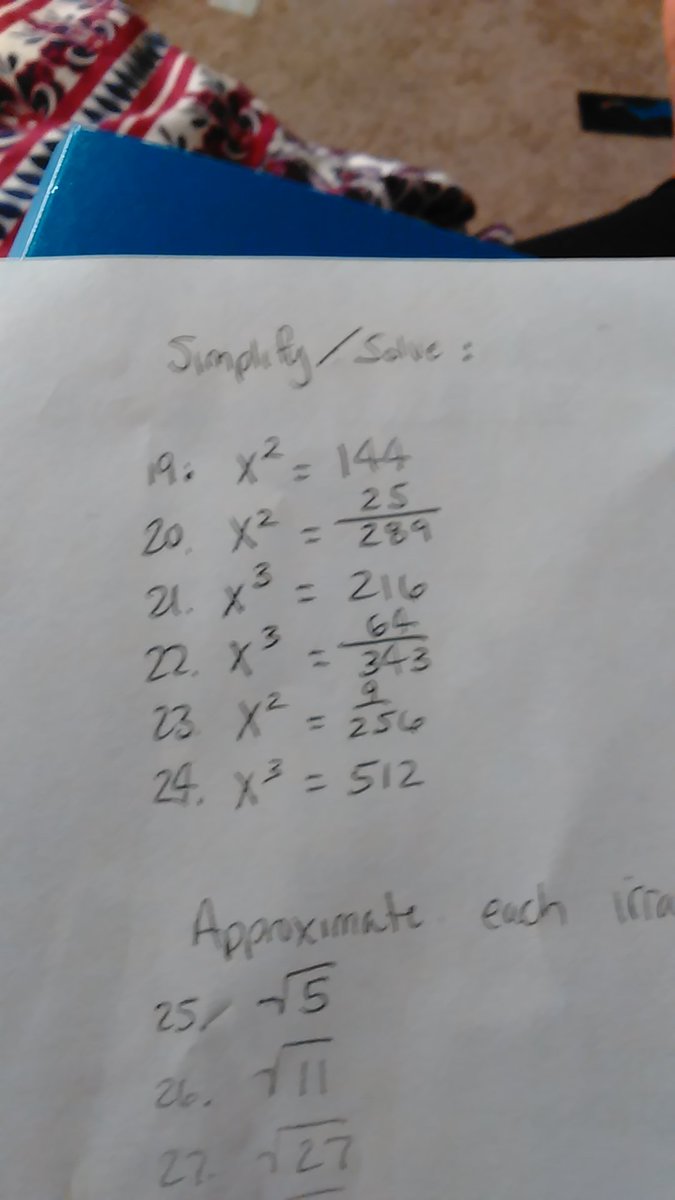 Simplify/Solve:
19. x² = 144
20. x² = 25/289
21. x³ = 216
22. x³ = 64/343
23. x² = 9/256
24. x³ = 512
Approximate each
25. √5
26. √11
27. √27